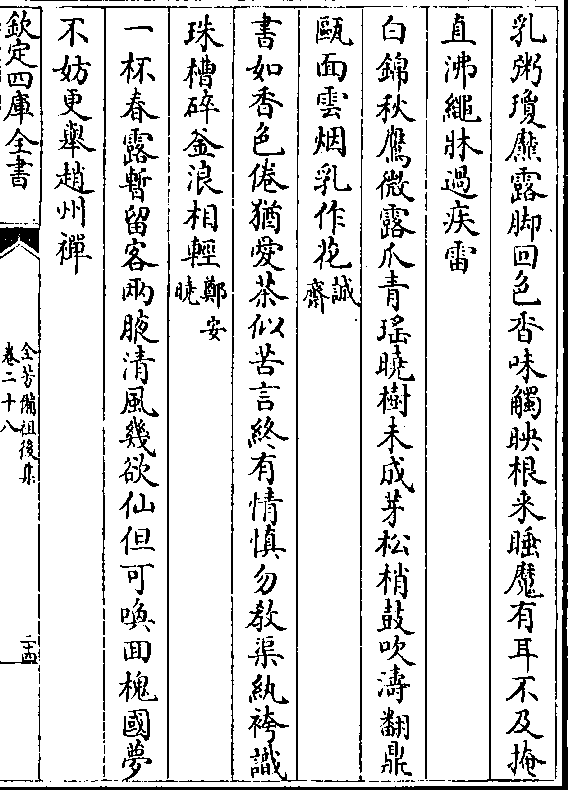 乳粥瓊糜露脚回色香味觸映根来睡魔有耳不及掩
直沸繩牀過疾雷
白錦秋鷹微露爪青瑶曉樹未成芽松梢鼓吹濤翻鼎
甌面雲烟乳作花誠齋
書如香色倦猶愛茶似苦言終有情慎勿敎渠紈袴識
珠槽碎釜浪相輕鄭安曉
一杯春露暫留客兩腋清風幾欲仙但可喚回槐國夢
不妨更舉趙州禪
欽定四庫全書
全芳備祖後集
卷二十八
二十四